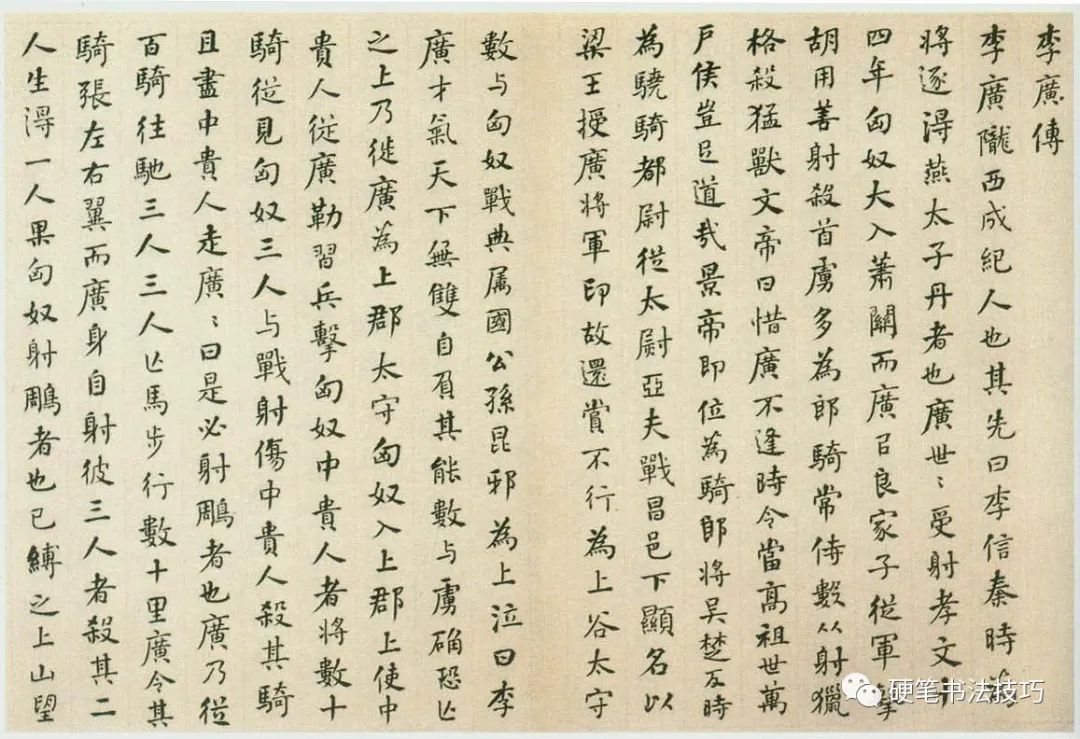 李廣傳
李廣隴西成紀人也其先曰李信秦時為
將逐得燕太子丹者也廣世〻受射孝文十
四年匈奴大入蕭關而廣㠯良家子從軍擊
胡用善射殺首虜多為郎騎常侍數從射獵
格殺猛獸文帝曰惜廣不逢時令當高祖世萬
戶侯豈足道哉景帝即位為騎郎將吳楚反時
為驍騎都尉從太尉亞夫戰昌邑下顯名以
梁王授廣將軍印故還賞不行為上谷太守
數与匈奴戰典属國公孫昆邪為上泣曰李
廣才氣天下無雙自負其能數与虜确恐亡
之上乃徙廣為上郡太守匈奴入上郡上使中
貴人從廣勒習兵擊匈奴中貴人者將數十
騎從見匈奴三人与戰射傷中貴人殺其騎
且盡中貴人走廣〻曰是必射鵰者也廣乃從
百騎往馳三人三人亡馬步行數十里廣令其
騎張左右翼而廣身自射彼三人者殺其二
人生得一人果匈奴射鵰者也已縛之上山望
硬笔书法技巧